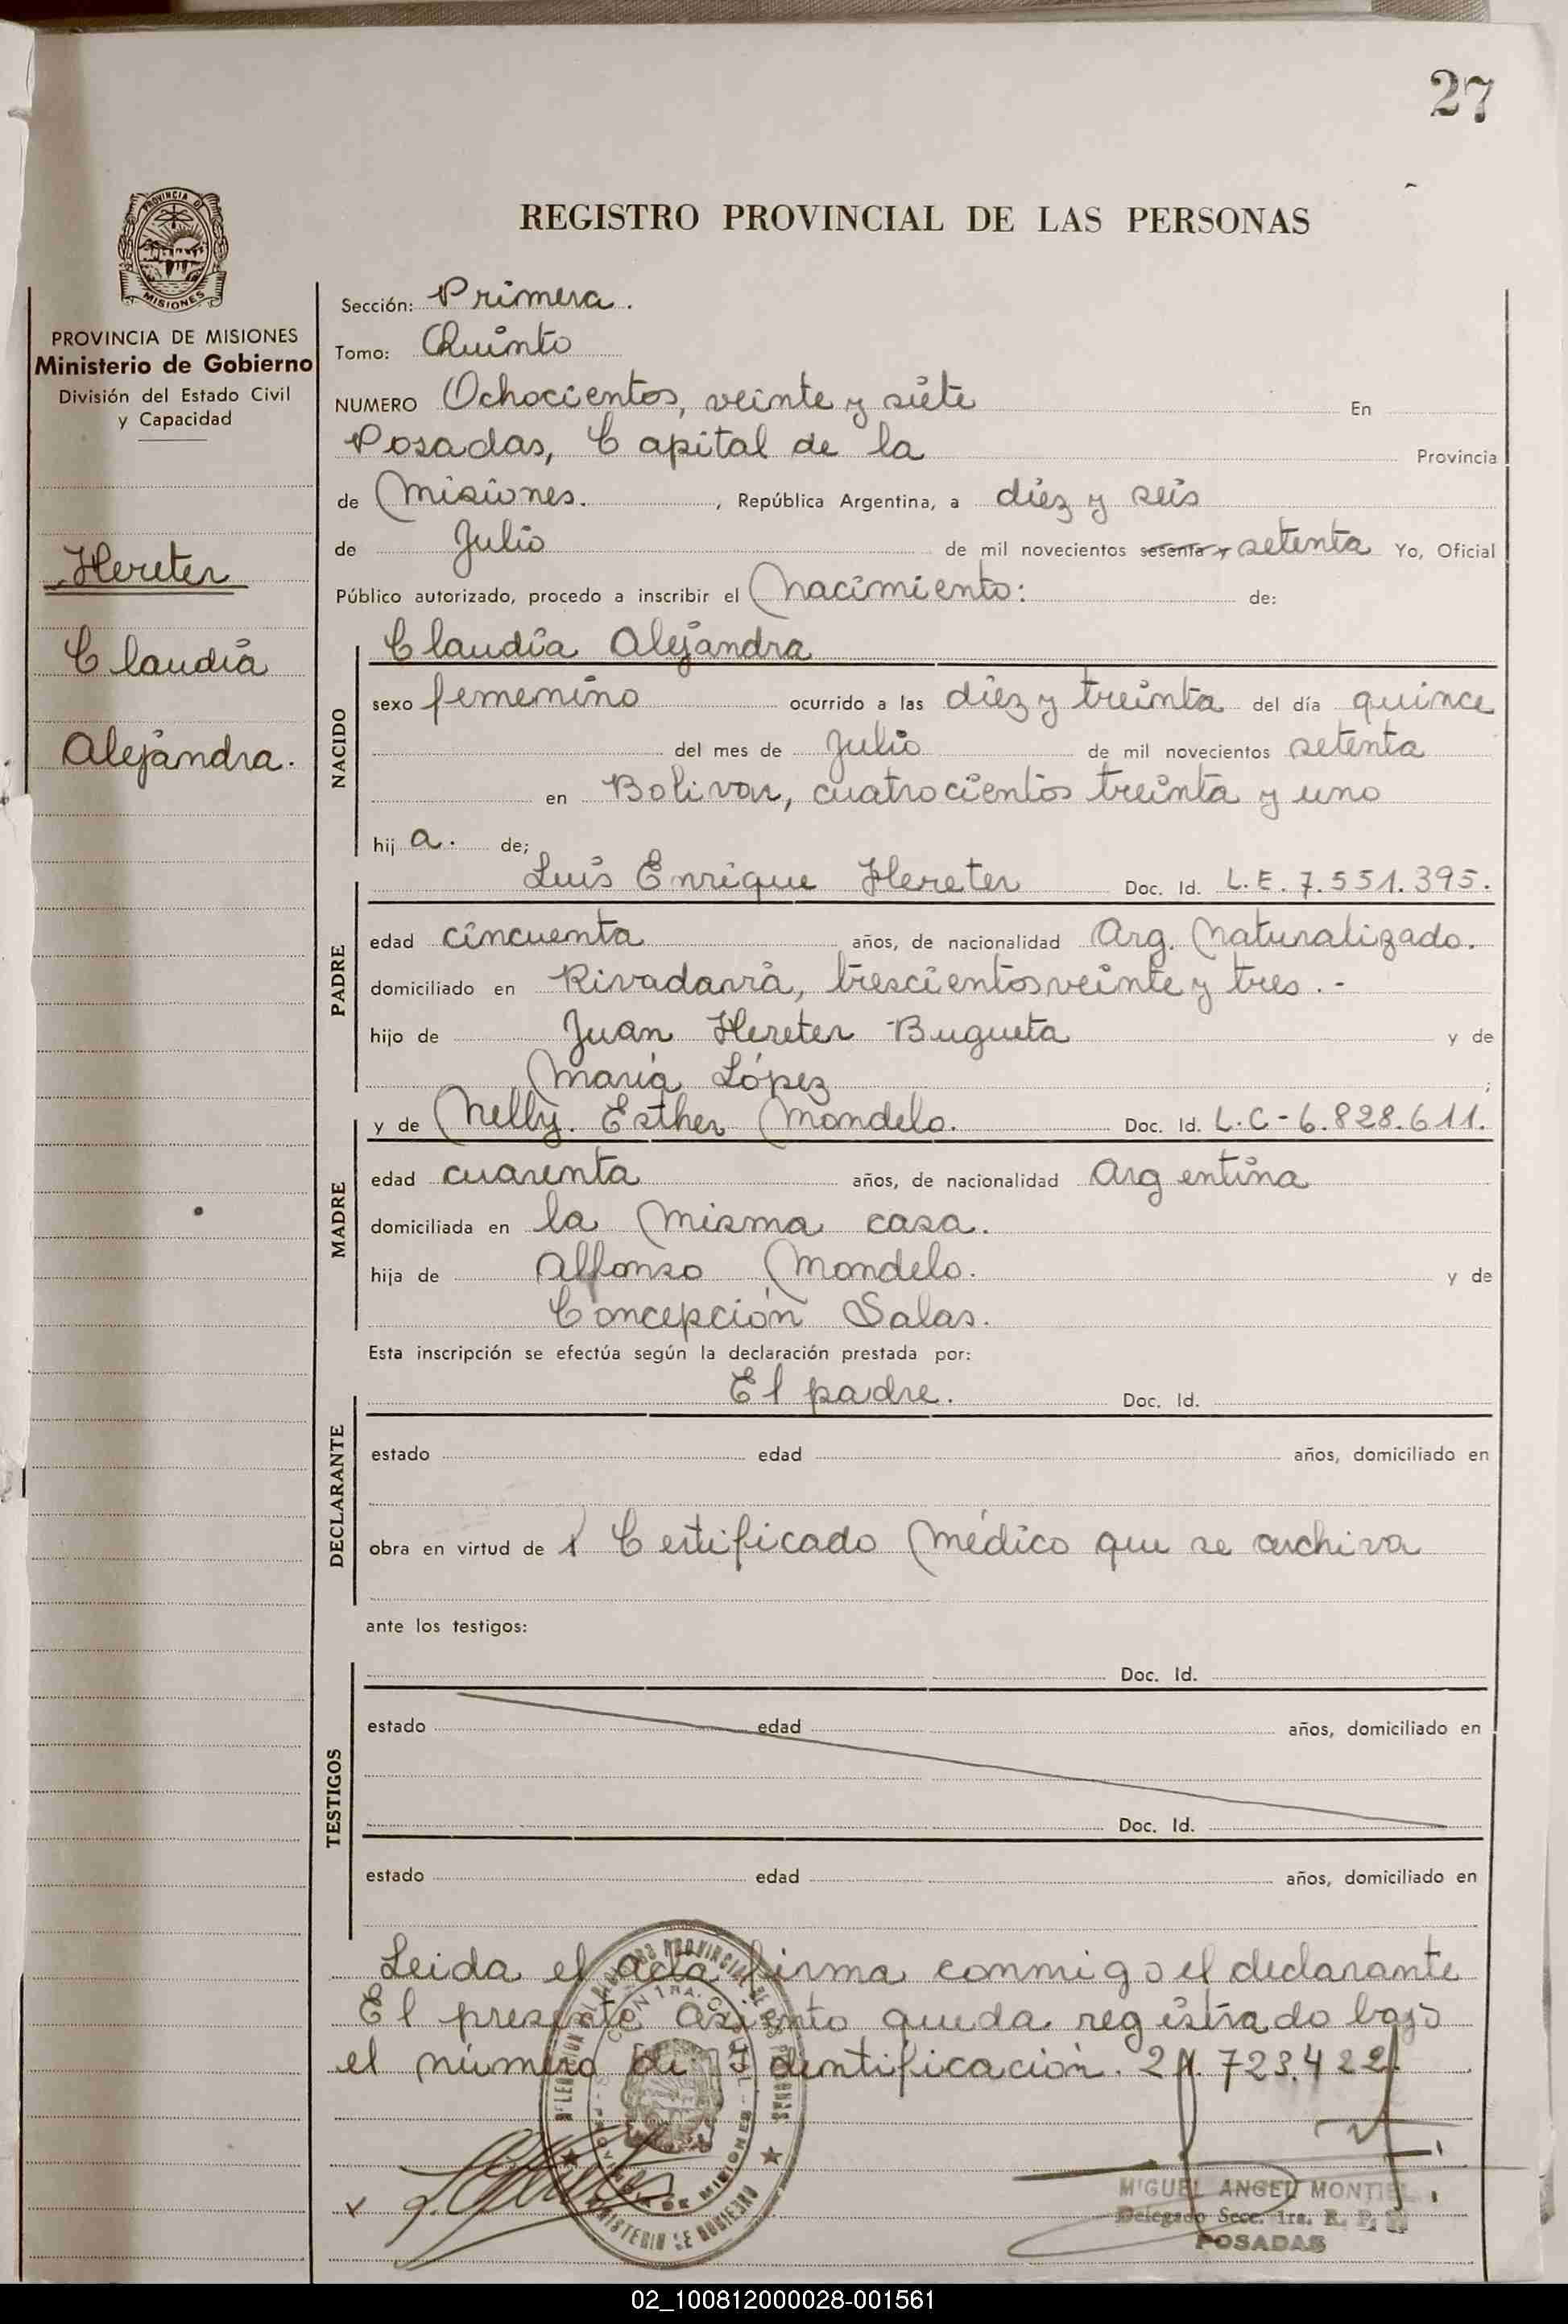 27
REGISTRO PROVINCIAL DE LAS PERSONAS
PROVINCIA DE
MISIONES
PROVINCIA DE MISIONES
Ministerio de Gobierno
División del Estado Civil
y Capacidad
Hereter
Claudia
Alejandra.
Sección: Primera.
Tomo: Quinto
NUMERO Ochocientos, veinte y siete En
Posadas, Capital de la Provincia
de Misiones. , República Argentina, a diez y seis
de Julio de mil novecientos sesenta y setenta Yo, Oficial
Público autorizado, procedo a inscribir el Nacimiento: de:
Claudia Alejandra
NACIDO
sexo femenino ocurrido a las diez y treinta del día quince
del mes de Julio de mil novecientos setenta
en Bolivar, cuatrocientos treinta y uno
hij a. de;
Luis Enrique Hereter Doc. Id. L.E. 7.551.395.
PADRE
edad cincuenta años, de nacionalidad Arg. Naturalizado.
domiciliado en Rivadavia, trescientos veinte y tres.-
hijo de Juan Hereter Bugueta y de
María López ;
y de Nelly. Esther Mondelo. Doc. Id. L.C-6.828.611.
MADRE
edad cuarenta años, de nacionalidad Argentina
domiciliada en la misma casa.
hija de Alfonso Mondelo. y de
Concepción Salas.
Esta inscripción se efectúa según la declaración prestada por:
El padre. Doc. Id.
DECLARANTE
estado edad años, domiciliado en
obra en virtud de 1 Certificado Médico que se archiva
ante los testigos:
Doc. Id.
TESTIGOS
estado edad años, domiciliado en
Doc. Id.
estado edad años, domiciliado en
Leida el acta firma conmigo el declarante
El presente asiento queda registrado bajo
el número de Identificación. 21.723.422.
PROVINCIA DE MISIONES
MINISTERIO DE GOBIERNO
MIGUEL ANGEL MONTIEL
Delegado Secc. 1ra. R. P. P.
POSADAS
02_100812000028-001561